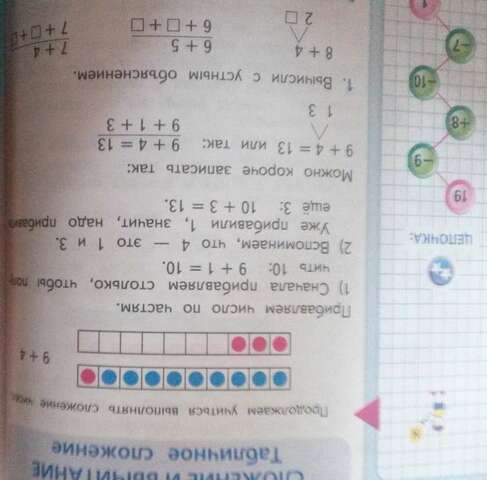 СЛОЖЕНИЕ И ВЫЧИТАНИЕ
Табличное сложение
Продолжаем учиться выполнять сложение чисел
9 + 4
Прибавляем число по частям.
1) Сначала прибавляем столько, чтобы полу
чить 10: 9 + 1 = 10.
2) Вспоминаем, что 4 — это 1 и 3.
Уже прибавили 1, значит, надо прибавить
ещё 3: 10 + 3 = 13.
Можно короче записать так:
9 + 4 = 13 или так: 9 + 4 = 13
1 3 9 + 1 + 3
1. Вычисли с устным объяснением.
8 + 4 6 + 5 7 + 4
2 □ 6 + □ + □ 7 + □ + □
ЦЕПОЧКА:
19
−9
+8
−10
−7
1